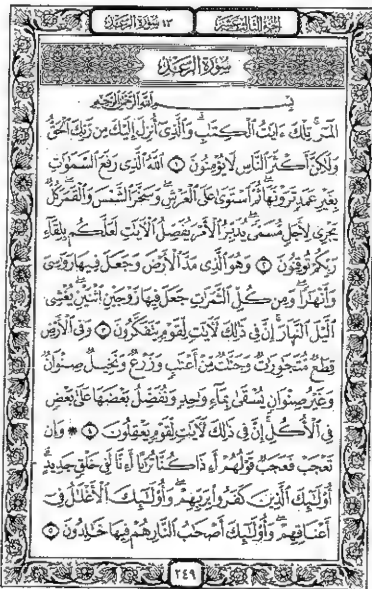 الجزء الثالث عشر ١٣ سورة الرعد
سورة الرعد
بسم الله الرحمن الرحيم
الٓمٓرۚ تِلْكَ ءَايَٰتُ ٱلْكِتَٰبِۗ وَٱلَّذِىٓ أُنزِلَ إِلَيْكَ مِن رَّبِّكَ ٱلْحَقُّ
وَلَٰكِنَّ أَكْثَرَ ٱلنَّاسِ لَا يُؤْمِنُونَ ١ ٱللَّهُ ٱلَّذِى رَفَعَ ٱلسَّمَٰوَٰتِ
بِغَيْرِ عَمَدٍ تَرَوْنَهَاۖ ثُمَّ ٱسْتَوَىٰ عَلَى ٱلْعَرْشِۖ وَسَخَّرَ ٱلشَّمْسَ وَٱلْقَمَرَۖ كُلٌّ
يَجْرِى لِأَجَلٍ مُّسَمًّىۚ يُدَبِّرُ ٱلْأَمْرَ يُفَصِّلُ ٱلْءَايَٰتِ لَعَلَّكُم بِلِقَآءِ
رَبِّكُمْ تُوقِنُونَ ٢ وَهُوَ ٱلَّذِى مَدَّ ٱلْأَرْضَ وَجَعَلَ فِيهَا رَوَٰسِىَ
وَأَنْهَٰرًاۖ وَمِن كُلِّ ٱلثَّمَرَٰتِ جَعَلَ فِيهَا زَوْجَيْنِ ٱثْنَيْنِۖ يُغْشِى
ٱلَّيْلَ ٱلنَّهَارَۚ إِنَّ فِى ذَٰلِكَ لَءَايَٰتٍ لِّقَوْمٍ يَتَفَكَّرُونَ ٣ وَفِى ٱلْأَرْضِ
قِطَعٌ مُّتَجَٰوِرَٰتٌ وَجَنَّٰتٌ مِّنْ أَعْنَٰبٍ وَزَرْعٌ وَنَخِيلٌ صِنْوَانٌ
وَغَيْرُ صِنْوَانٍ يُسْقَىٰ بِمَآءٍ وَٰحِدٍ وَنُفَضِّلُ بَعْضَهَا عَلَىٰ بَعْضٍ
فِى ٱلْأُكُلِۚ إِنَّ فِى ذَٰلِكَ لَءَايَٰتٍ لِّقَوْمٍ يَعْقِلُونَ ٤ ۞ وَإِن
تَعْجَبْ فَعَجَبٌ قَوْلُهُمْ أَءِذَا كُنَّا تُرَٰبًا أَءِنَّا لَفِى خَلْقٍ جَدِيدٍۗ
أُو۟لَٰٓئِكَ ٱلَّذِينَ كَفَرُوا۟ بِرَبِّهِمْۖ وَأُو۟لَٰٓئِكَ ٱلْأَغْلَٰلُ فِىٓ
أَعْنَاقِهِمْۖ وَأُو۟لَٰٓئِكَ أَصْحَٰبُ ٱلنَّارِۖ هُمْ فِيهَا خَٰلِدُونَ ٥
٢٤٩